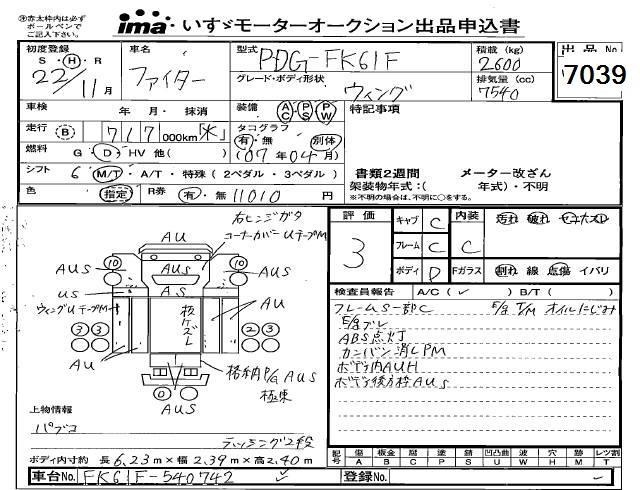 ㊟赤太枠内は必ず
ボールペンで
ご記入下さい。
ima いすゞモーターオークション出品申込書
初度登録
S・H・R
22/11月
車名
ファイター
型式
PDG-FK61F
グレード・ボディ形状
ウィング
積載 (kg)
2600
排気量 (cc)
7540
出品No
7039
車検 年 月・抹消
装備 AC PS PW
特記事項
走行 B 717000km
タコグラフ
有・無 別体
(07年04月)
燃料 G・D・HV 他( )
シフト 6 M/T・A/T・特殊(2ペダル・3ペダル)
書類2週間 メーター改ざん
架装物年式:( 年式)・不明
※不明の場合は、不明に○をする。
色 指定 R券 有・無 11010円
評価
3
キャブ C
フレーム C
ボディ D
内装
C
Fガラス
汚れ 破れ ヤニ
割れ 線 点傷 イバリ
検査員報告 A/C(✓) B/T( )
フレームS一部C
E/gブレ
E/g T/M オイルにじみ
ABS点灯
カンバン消しPM
ボデー内AUH
ボデー後方枠AUS
右ヒンジガタ
コーナーカバーUテープM
AU
10
AUS
US
A.S
10
AUS
ウィングUテープM
3 3
AU
2 3
AU
格納P/G AUS
極東
0
AUS
上物情報
パブコ
ラッシング2段
ボディ内寸約 長6.23m×幅2.39m×高2.40m
記号
傷 A
板金 B
腐 C
塗 P
錆 S
凹凸曲 U
波 W
穴 H
跡 M
レツ割 T
車台No. FK61F-540742
登録No.